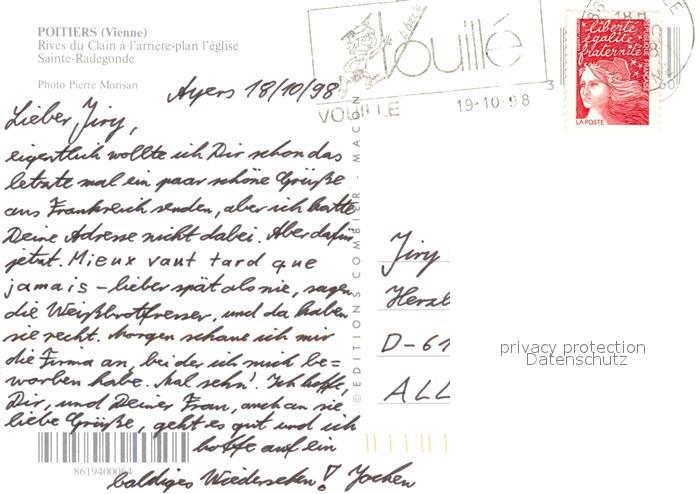 POITIERS (Vienne)
Rives du Clain à l'arrière-plan l'église
Sainte-Radegonde
Photo Pierre Morisan
Vouillé
VOUILLE
19-10-98
18H
liberté
égalité
fraternité
RÉPUBLIQUE FRANÇAISE
LA POSTE
Ayers 18/10/98
Lieber Jiry,
eigentlich wollte ich Dir schon das
letzte mal ein paar schöne Grüße
aus Frankreich senden, aber ich hatte
Deine Adresse nicht dabei. Aber dafür
jetzt. Mieux vaut tard que
jamais – lieber spät als nie, sagen
die Weißbrotfresser, und da haben
sie recht. Morgen schaue ich mir
die Firma an, bei der ich mich be=
worben habe. Mal sehn! Ich hoffe,
Dir, und Deiner Frau, auch an sie
liebe Grüße, geht es gut und ich
hoffe auf ein
baldiges Wiedersehen! Jochen
8619400064
© EDITIONS COMBIER - MACON
Jiry
D-61
ALL
privacy protection
Datenschutz